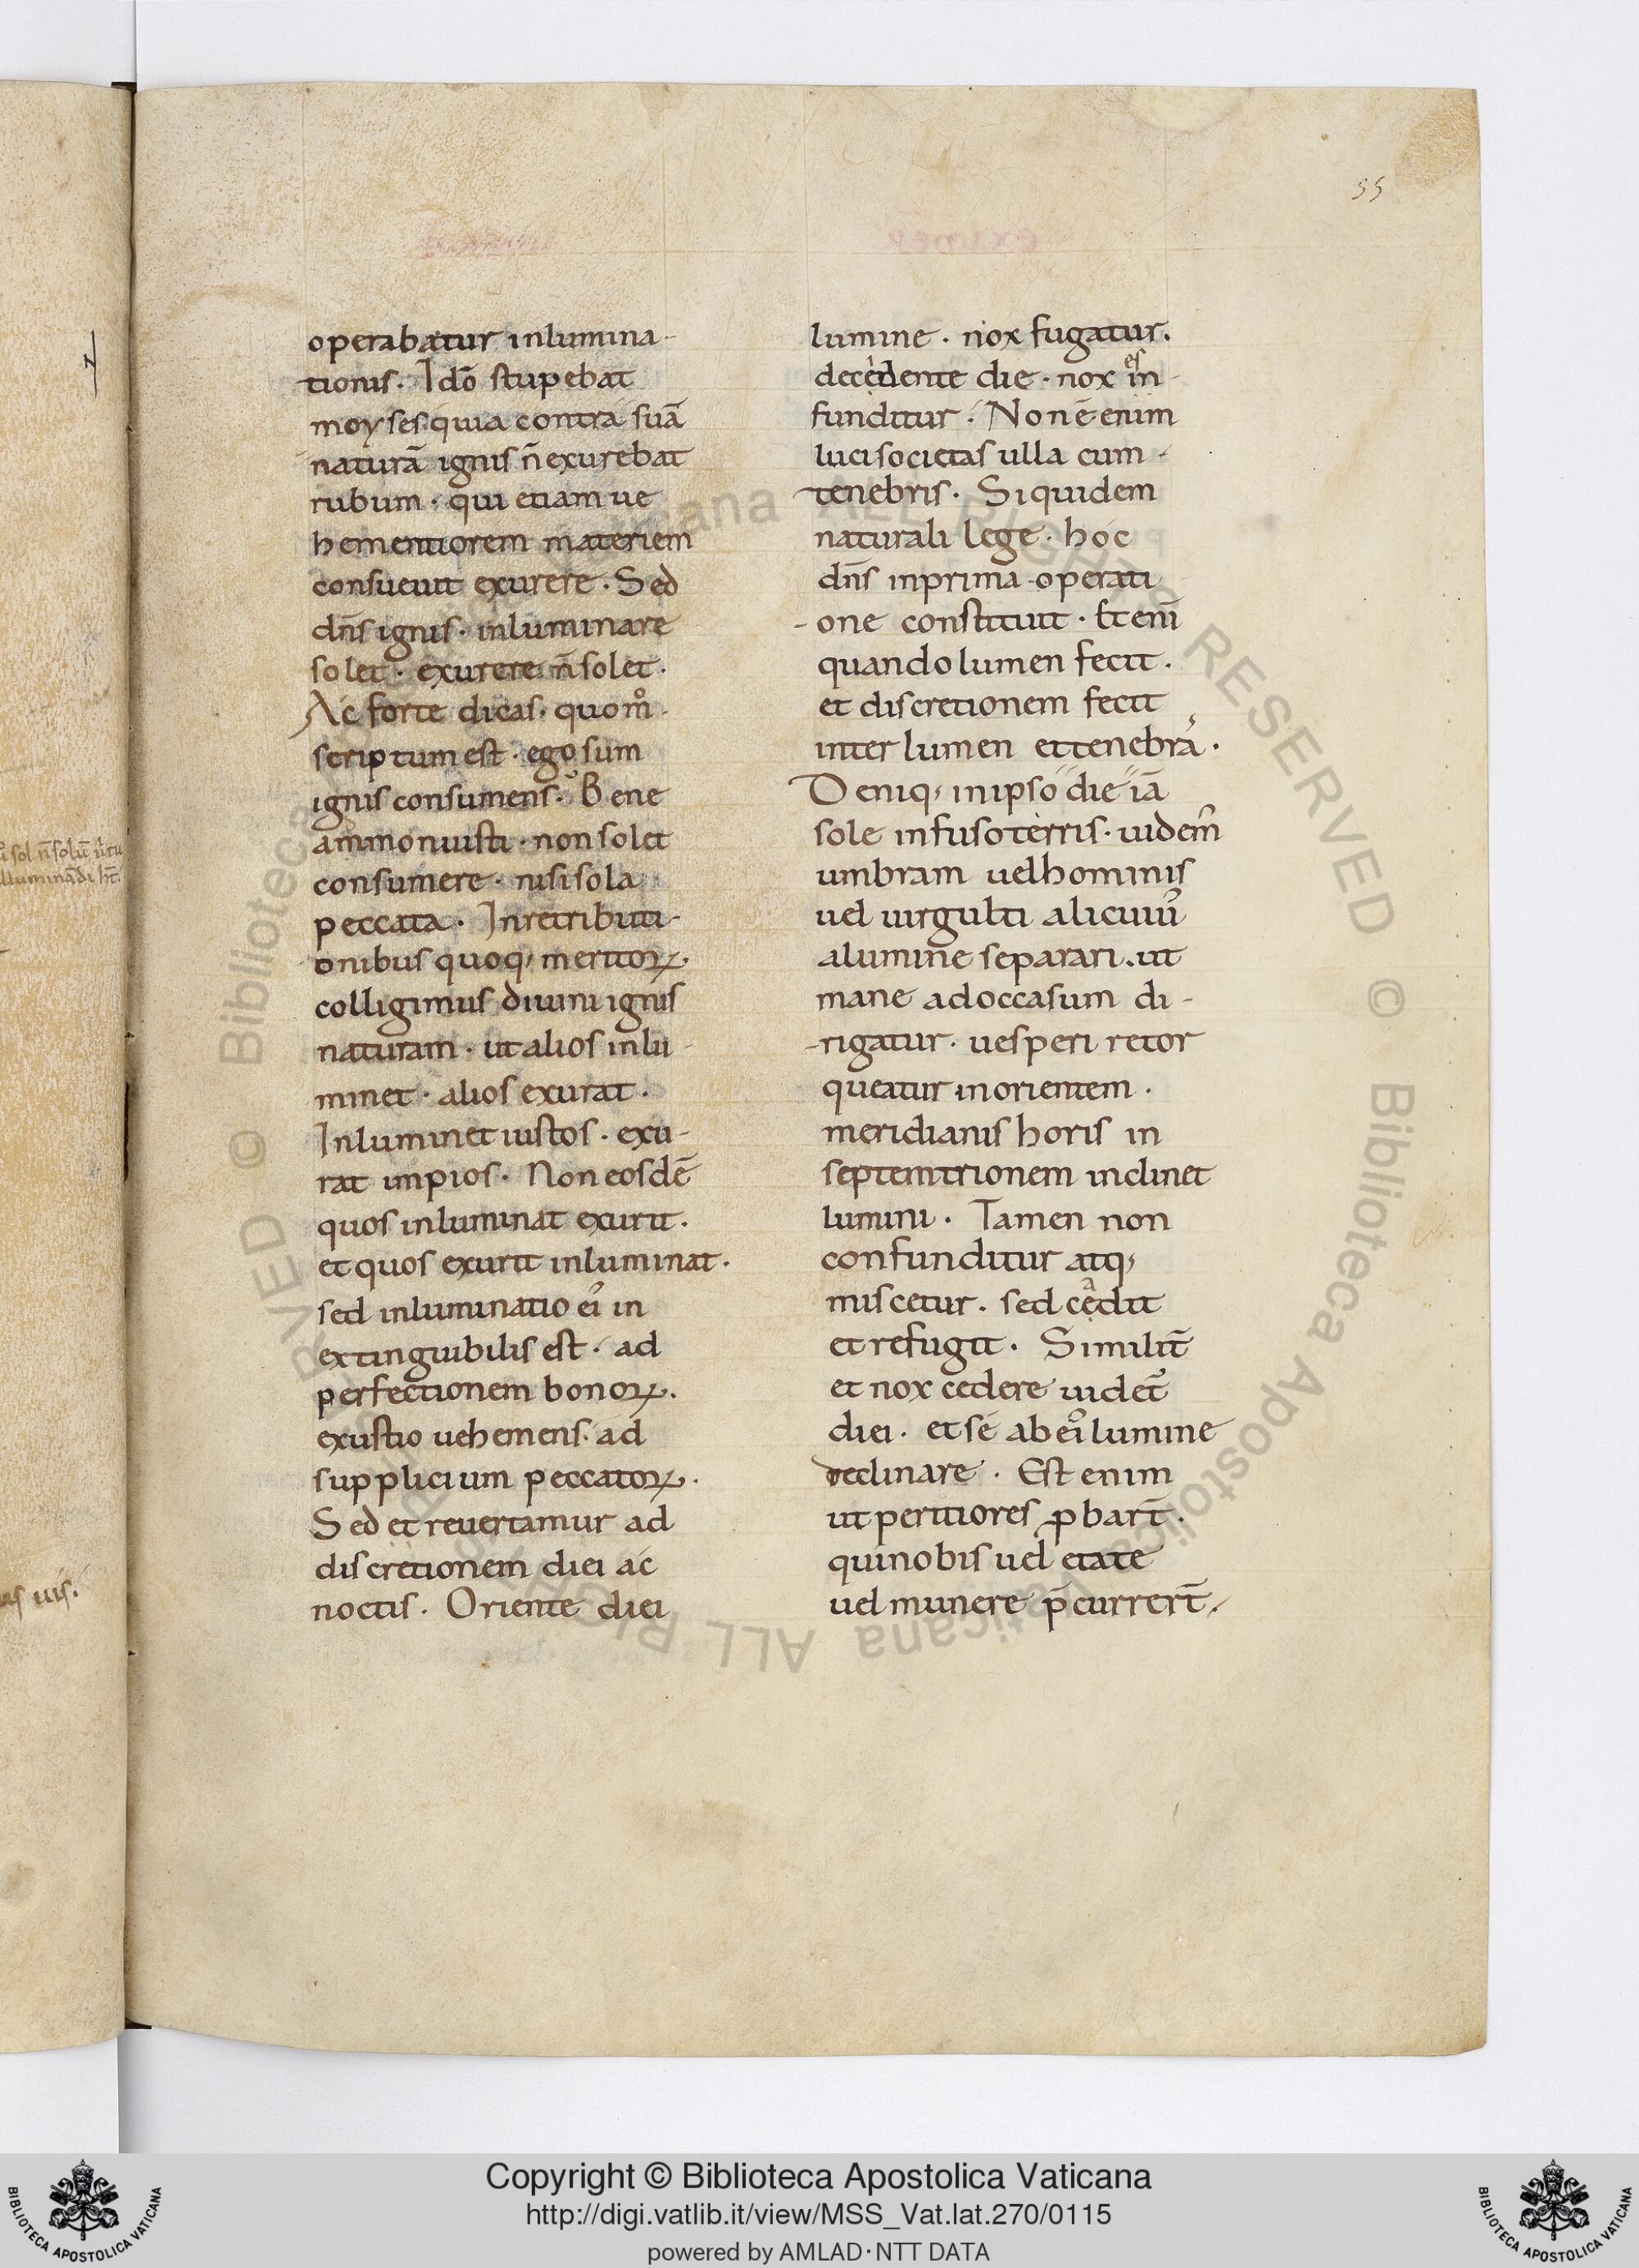 55
operabatur inlumina-
tionis. Idō stupebat
moyses quia contra suā
naturā ignis n̄ exurebat
rubum · qui etiam ue
hementiorem materiem
consueuit exurere · Sed
dn̄s ignis · inluminare
solet · exurere n̄ solet ·
Ac forte dicas · quom̊
scriptum est · ego sum
ignis consumens · Bene
ammonuisti · non solet
consumere · nisi sola
peccata · Inretributi-
onibus quoq; meritoꝝ
colligimus diuini ignis
naturam · ut alios inlu-
minet · alios exurat ·
Inluminet iustos · exu-
rat impios · Non eosdē
quos inluminat exurit ·
et quos exurit inluminat ·
sed inluminatio ei᾽ in
extinguibilis est · ad
perfectionem bonoꝝ ·
exustio uehemens · ad
supplicium peccatoꝝ ·
Sed et reuertamur ad
discretionem diei ac
noctis · Oriente diei
lumine · nox fugatur ·
decedente die · nox in-
es
funditur · Non ē enim
luci societas ulla cum-
tenebris · Siquidem
naturali lege · hoc
dn̄s inprima operati
-one constituit · Et enī
quando lumen fecit ·
et discretionem fecit
inter lumen et tenebra᾽ ·
Deniq; inipso die iā
sole infuso terris · uidem᾽
umbram uel hominis
uel uirgulti alicuiu᾽
alumine separari · ut
mane adoccasum di-
-rigatur · uesperi retor
queatur inorientem ·
meridianis horis in
septemtrionem inclinet
lumini · Tamen non
confunditur atq;
miscetur · sed cedit
a
et refugit · Similit̄
et nox cedere uidet᾽
diei · et se ab ei᾽ lumine
declinare · Est enim
ut peritiores ꝓbart̄ ·
quinobis uel etate
uel munere p̄currert̄ ·
Copyright © Biblioteca Apostolica Vaticana
http://digi.vatlib.it/view/MSS_Vat.lat.270/0115
powered by AMLAD·NTT DATA
BIBLIOTECA APOSTOLICA VATICANA
BIBLIOTECA APOSTOLICA VATICANA